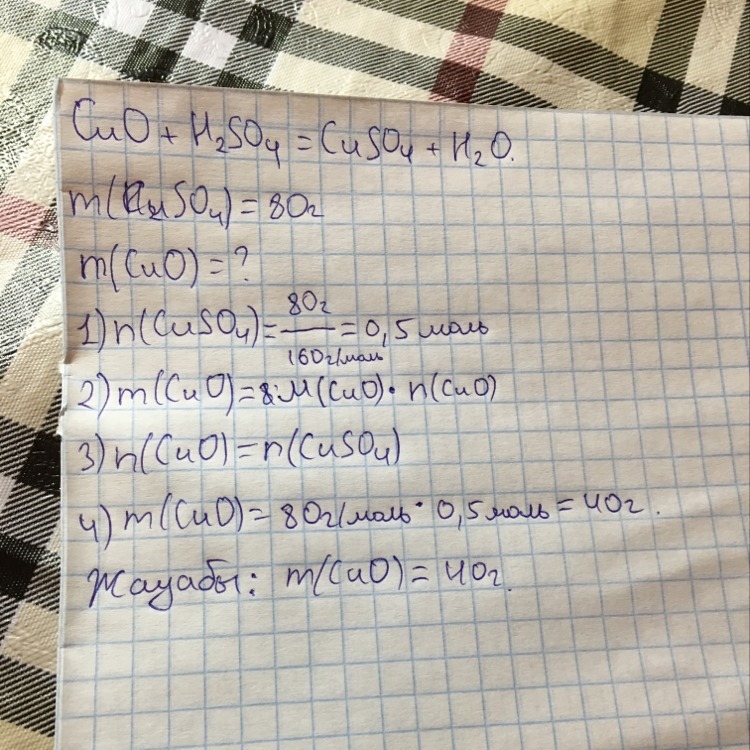 CuO + H₂SO₄ = CuSO₄ + H₂O.
m(CuSO₄) = 80г
m(CuO) = ?
1) n(CuSO₄) = 80г / 160г/моль = 0,5 моль
2) m(CuO) = M(CuO) · n(CuO)
3) n(CuO) = n(CuSO₄)
4) m(CuO) = 80г/моль · 0,5 моль = 40г.
Жауабы: m(CuO) = 40г.